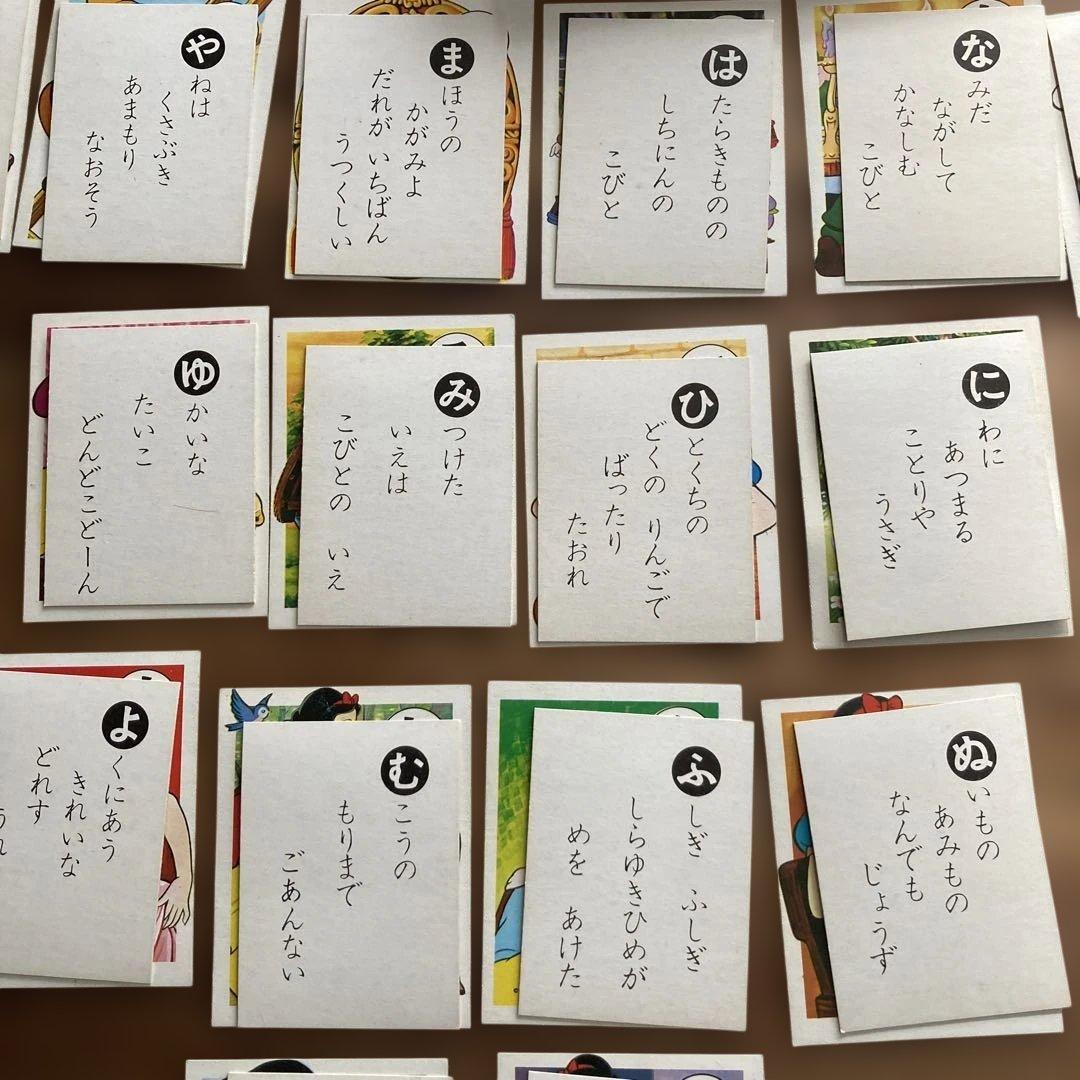 なみだ
ながして
かなしむ
こびと
はたらきものの
しちにんの
こびと
まほうの
かがみよ
だれが いちばん
うつくしい
やねは
くさぶき
あまもり
なおそう
にわに
あつまる
ことりや
うさぎ
ひとくちの
どくの りんごで
ばったり
たおれ
みつけた
いえは
こびとの いえ
ゆかいな
たいこ
どんどこどーん
ぬいもの
あみもの
なんでも
じょうず
ふしぎ ふしぎ
しらゆきひめが
めを あけた
むこうの
もりまで
ごあんない
よくにあう
きれいな
どれす